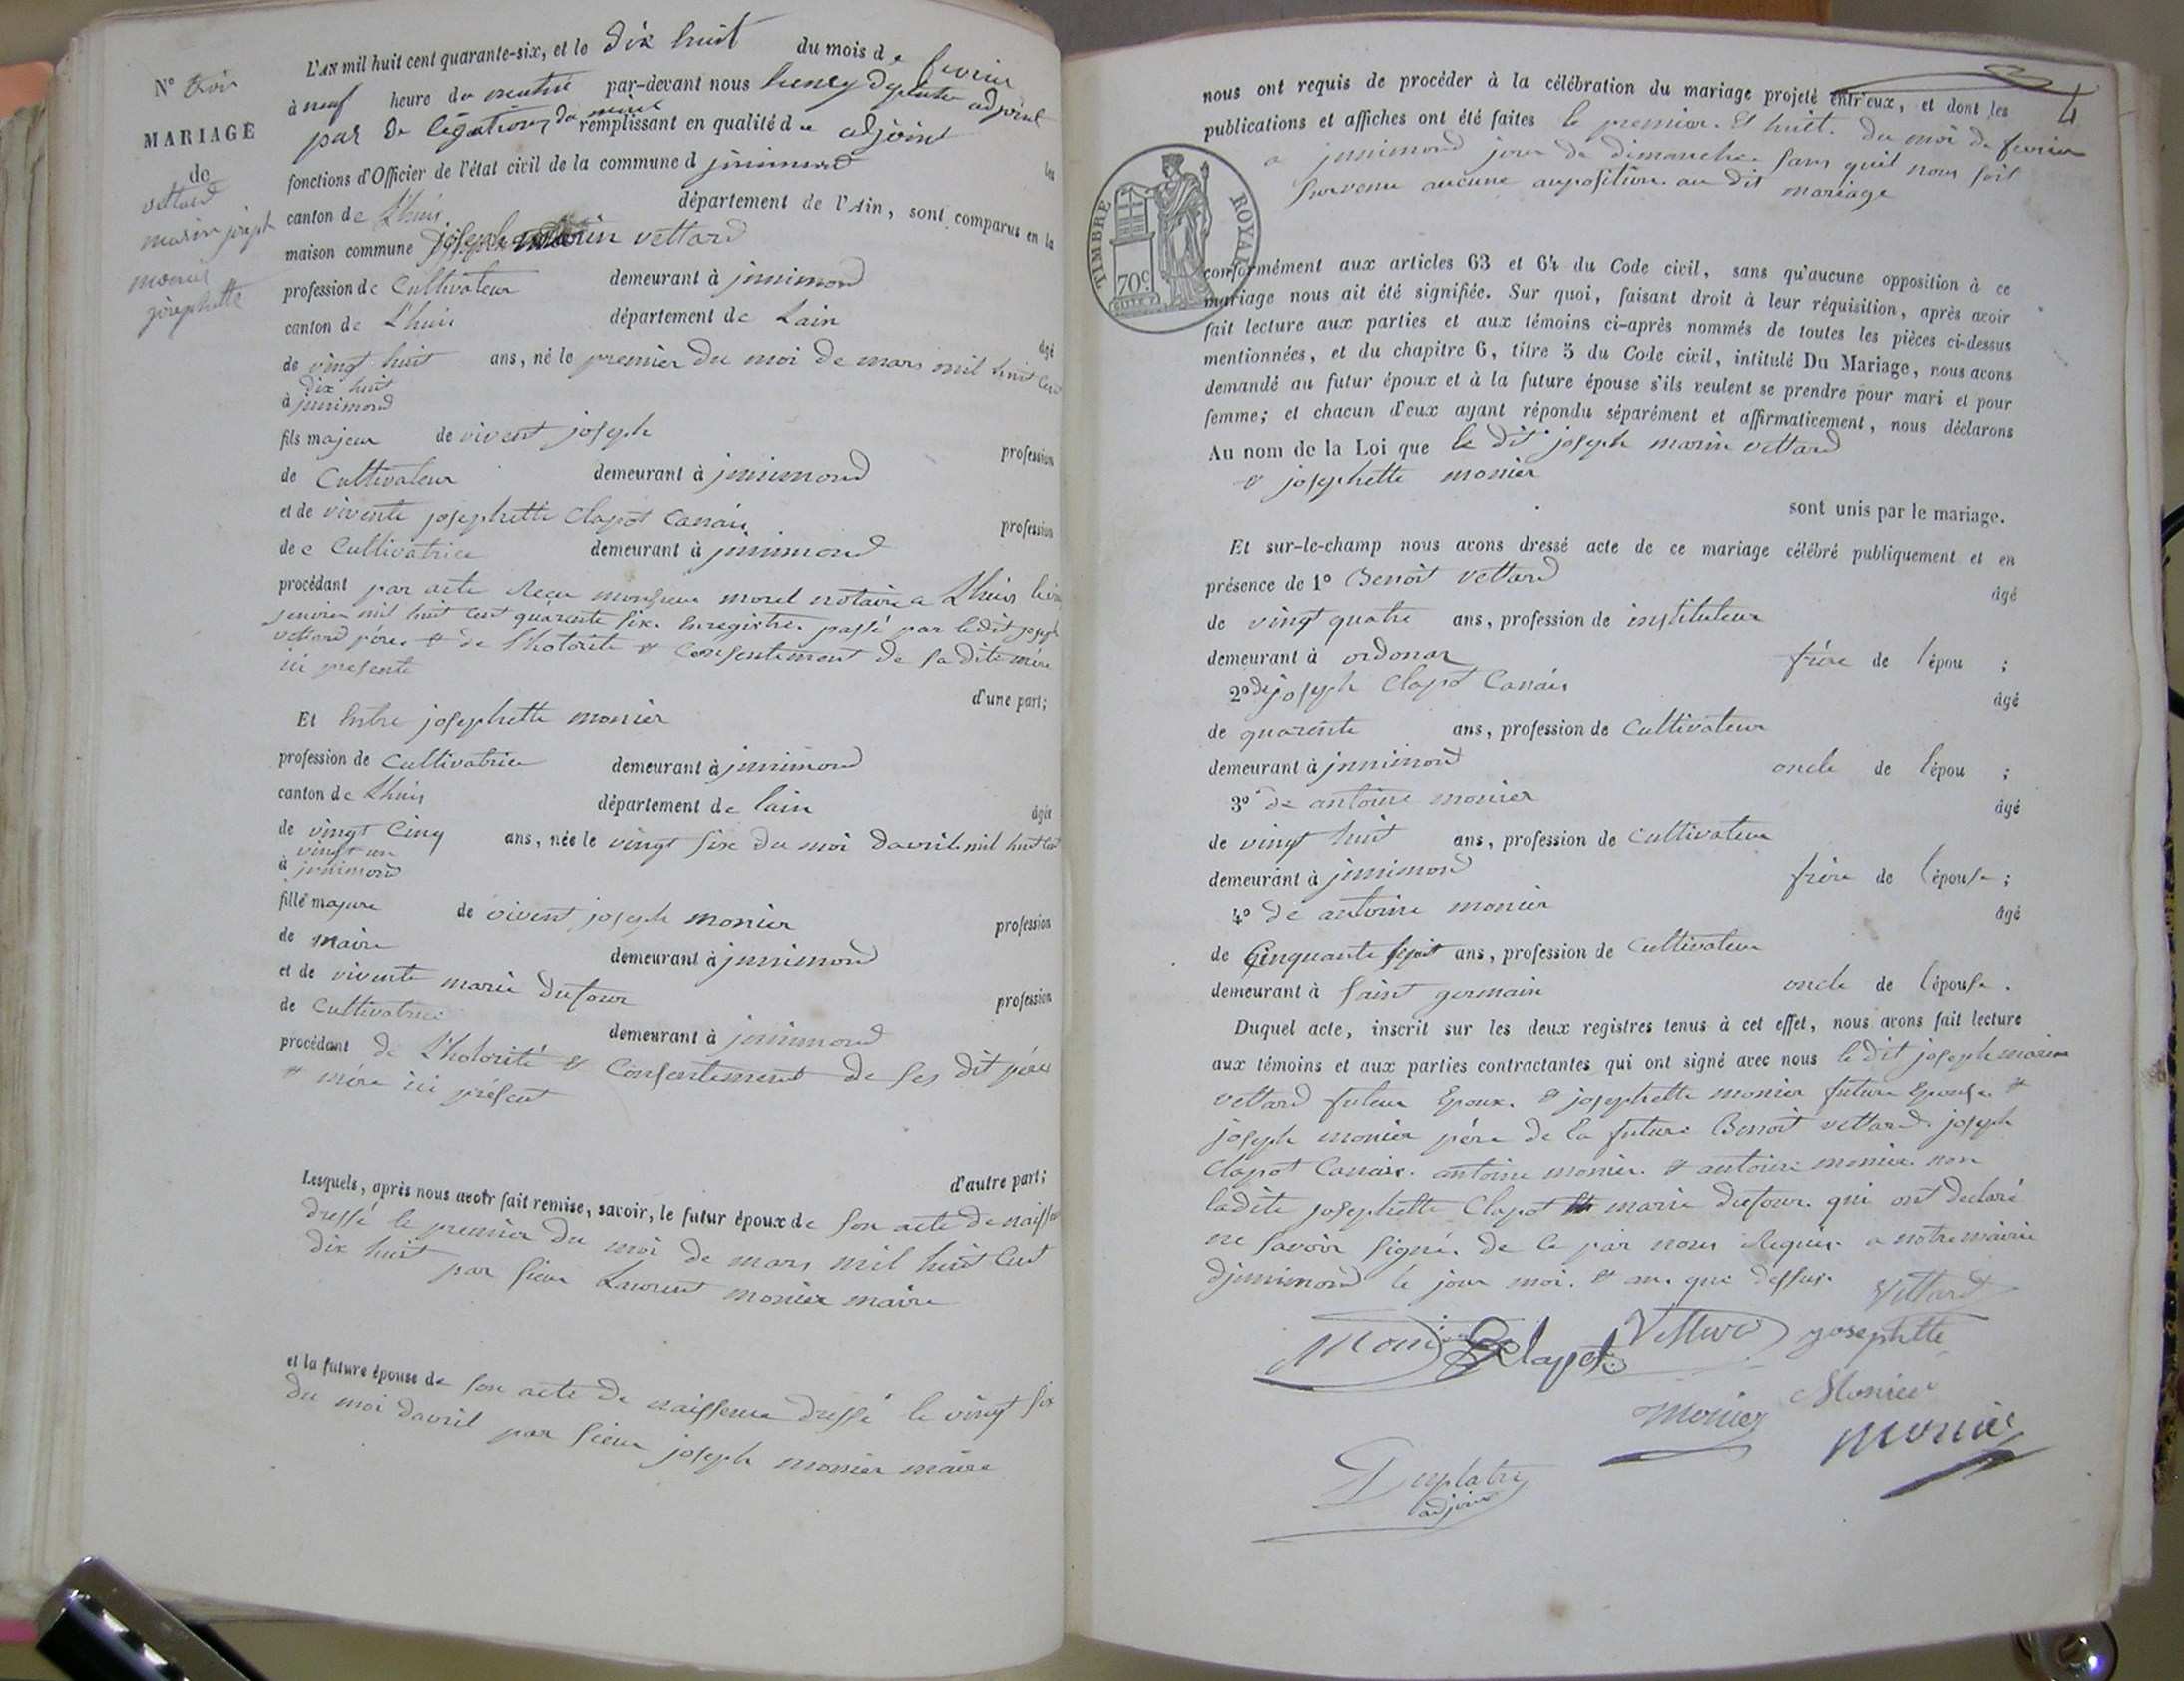 N° trois
MARIAGE
de
vettard
marin joseph
monier
josephette
L'AN mil huit cent quarante-six, et le dix huit du mois de fevrier
à neuf heure du matin par-devant nous henry Duplatre adjoint
par de légations du maire remplissant en qualité de adjoint les
fonctions d'Officier de l'état civil de la commune d jnnimond
canton de Lhuis département de l'Ain, sont comparus en la
maison commune joseph marin vettard
profession de Cultivateur demeurant à jnnimond
canton de L'huis département de Lain âgé
de vingt huit ans, né le premier du moi de mars mil huit Cent
dix huit
à jnnimond
fils majeur de vivent joseph profession
de Cultivateur demeurant à jnnimond
et de vivente josephette Clapot Canais profession
de e Cultivatrice demeurant à jnnimond
procédant par acte Recu monsieur morel notaire a Lhuis le
janvier mil huit Cent quarente six. Enregistré. passé par ledit joseph
vettard père. et de Lhotorité et Consentement de sa dite mère
ici presente
d'une part;
Et Entre josephette monier
profession de Cultivatrice demeurant à jnnimond
canton de Lhuis département de lain âgée
de vingt Cinq ans, née le vingt six du moi davril mil huit Cent
vingt un
à jnnimond
fille majure de vivent joseph monier profession
de maire demeurant à jnnimond
et de vivente marie dufour profession
de Cultivatrice demeurant à jnnimond
procédant de L'hotorité et Consentement de ses dit père
et mère ici présent
d'autre part;
Lesquels, après nous avoir fait remise, savoir, le futur époux de son acte de naissance
dressé le premier du moi de mars mil huit Cent
dix huit par sieur Laurent monier maire
et la future épouse de son acte de naissence dressé le vingt six
du moi davril par sieur joseph monier maire
4
nous ont requis de procéder à la célébration du mariage projeté entr'eux, et dont les
publications et affiches ont été faites le premier. Et huit. du moi de fevrier
a jnnimond jour de dimanche. sans quil nous soit
survenu aucune auposition. au dit mariage
TIMBRE ROYAL
70c
conformément aux articles 63 et 64 du Code civil, sans qu'aucune opposition à ce
mariage nous ait été signifiée. Sur quoi, faisant droit à leur réquisition, après avoir
fait lecture aux parties et aux témoins ci-après nommés de toutes les pièces ci-dessus
mentionnées, et du chapitre 6, titre 5 du Code civil, intitulé Du Mariage, nous avons
demandé au futur époux et à la future épouse s'ils veulent se prendre pour mari et pour
femme; et chacun d'eux ayant répondu séparément et affirmativement, nous déclarons
Au nom de la Loi que le dit joseph marin vettard
et josephette monier
sont unis par le mariage.
Et sur-le-champ nous avons dressé acte de ce mariage célébré publiquement et en
présence de 1° Benoit vettard âgé
de vingt quatre ans, profession de instituteur
demeurant à ordonar frère de l'épou ;
2° de joseph Clapot Canais âgé
de quarente ans, profession de Cultivateur
demeurant à jnnimond oncle de l'épou ;
3° de antoine monier âgé
de vingt huit ans, profession de Cultivateur
demeurant à jnnimond frère de l'épouse ;
4° de antoine monier âgé
de Cinquante sept ans, profession de Cultivateur
demeurant à saint germain oncle de l'épouse.
Duquel acte, inscrit sur les deux registres tenus à cet effet, nous avons fait lecture
aux témoins et aux parties contractantes qui ont signé avec nous le dit joseph marin
vettard futeur Epoux. et josephette monier future Epouse. et
joseph monier père de la future Benoit vettard. joseph
Clapot Canais. antoine monier. et antoine monier. non
ladite josephette Clapot marie dufour. qui ont declaré
ne savoir signé. de ce par nous Requis. a notre mairie
djnnimond le jour moi. et an. que dessus.
Vettard
Monier Clapot Vettard josephette
Monier
Monier monier
Duplatre
adjoint